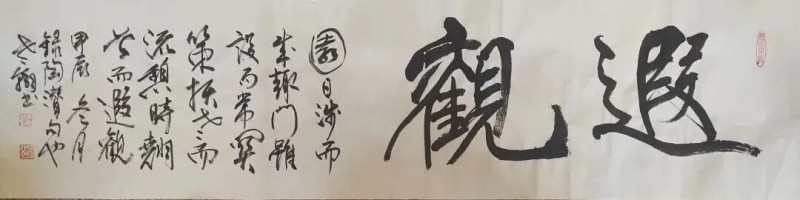 遐觀
園日涉而
成趣門雖
設而常關
策扶老而
流憩時
首而遐觀
甲辰冬月
錄陶潛句也
書